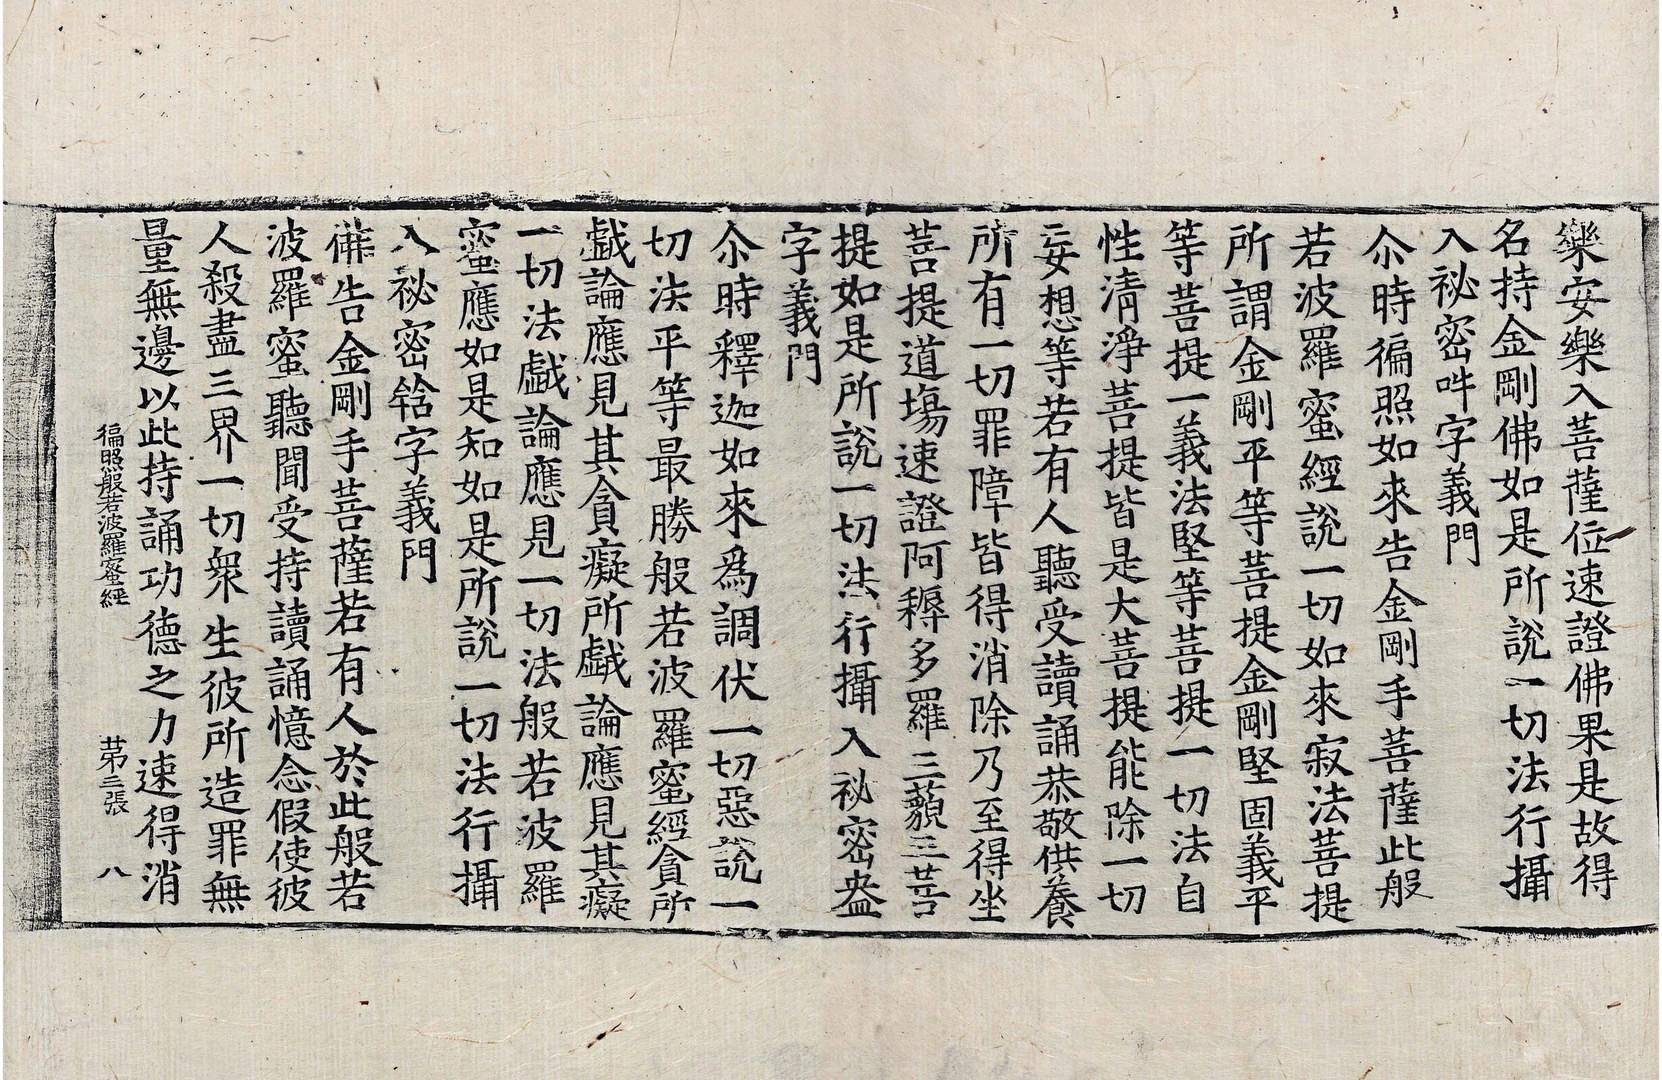 樂安樂入菩薩位速證佛果是故得
名持金剛佛如是所說一切法行攝
入祕密吽字義門
尒時徧照如來告金剛手菩薩此般
若波羅蜜經說一切如來寂法菩提
所謂金剛平等菩提金剛堅固義平
等菩提一義法堅等菩提一切法自
性清淨菩提皆是大菩提能除一切
妄想等若有人聽受讀誦恭敬供養
所有一切罪障皆得消除乃至得坐
菩提道場速證阿耨多羅三藐三菩
提如是所說一切法行攝入祕密𤙖
字義門
尒時釋迦如來爲調伏一切惡說一
切法平等最勝般若波羅蜜經貪所
戲論應見其貪癡所戲論應見其癡
一切法戲論應見一切法般若波羅
蜜應如是知如是所說一切法行攝
入祕密𤚥字義門
佛告金剛手菩薩若有人於此般若
波羅蜜聽聞受持讀誦憶念假使彼
人殺盡三界一切衆生彼所造罪無
量無邊以此持誦功德之力速得消
徧照般若波羅蜜經 苐三張 八